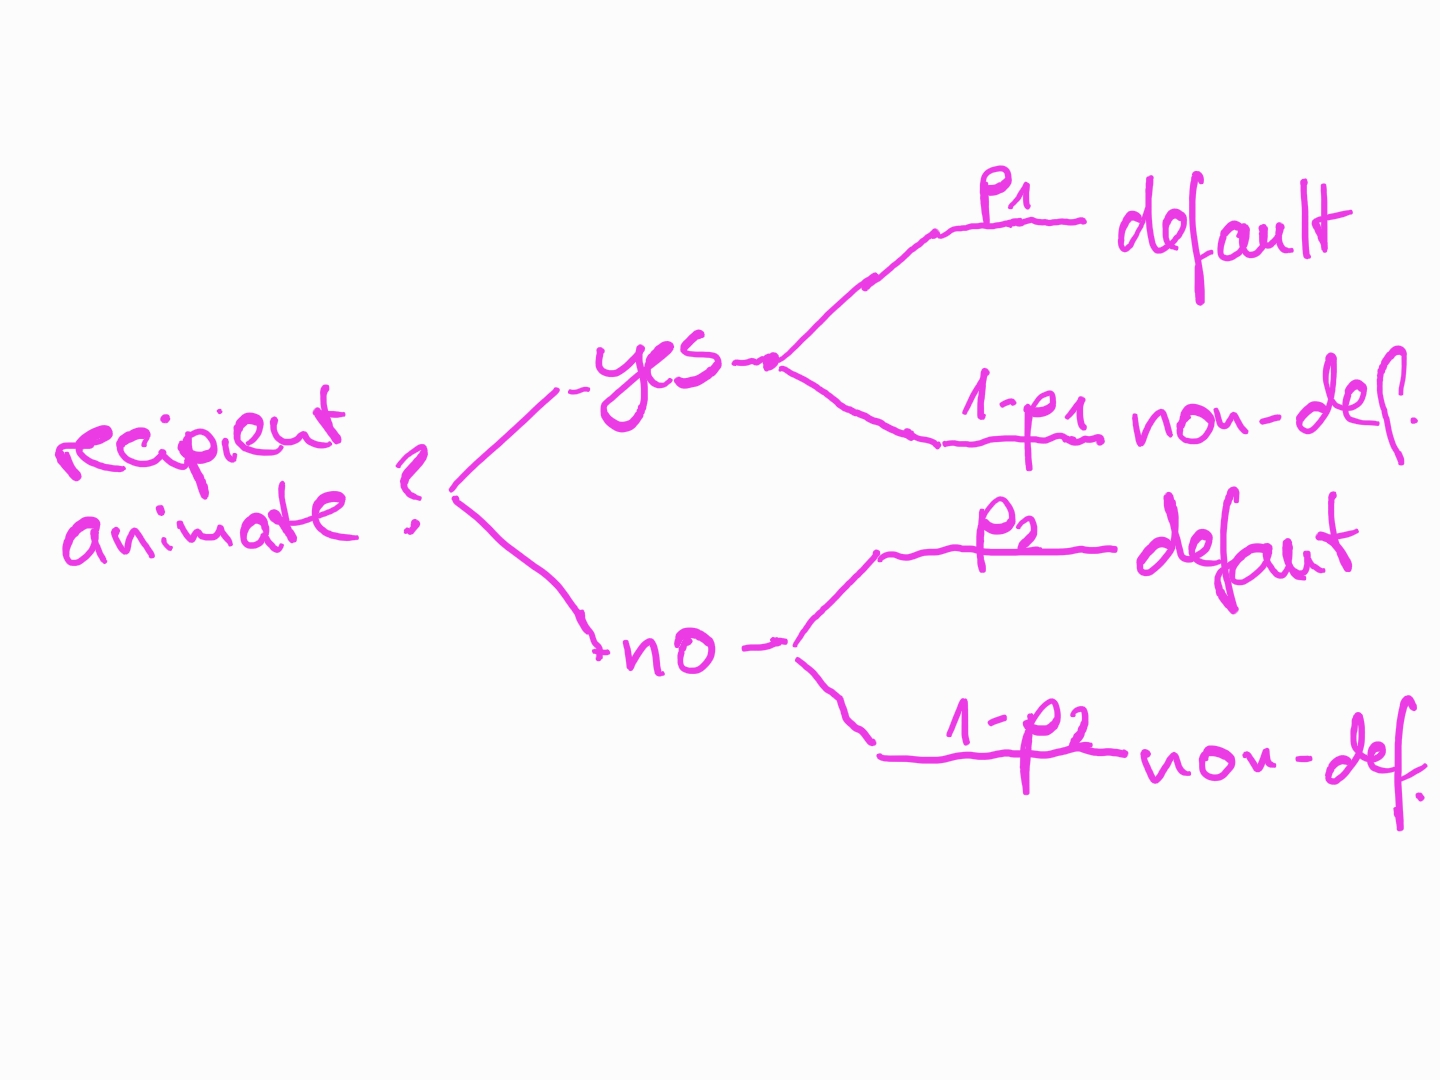 recipient
animate ?
yes
p1 default
1-p1 non-def.
no
p2 defaut
1-p2 non-def.